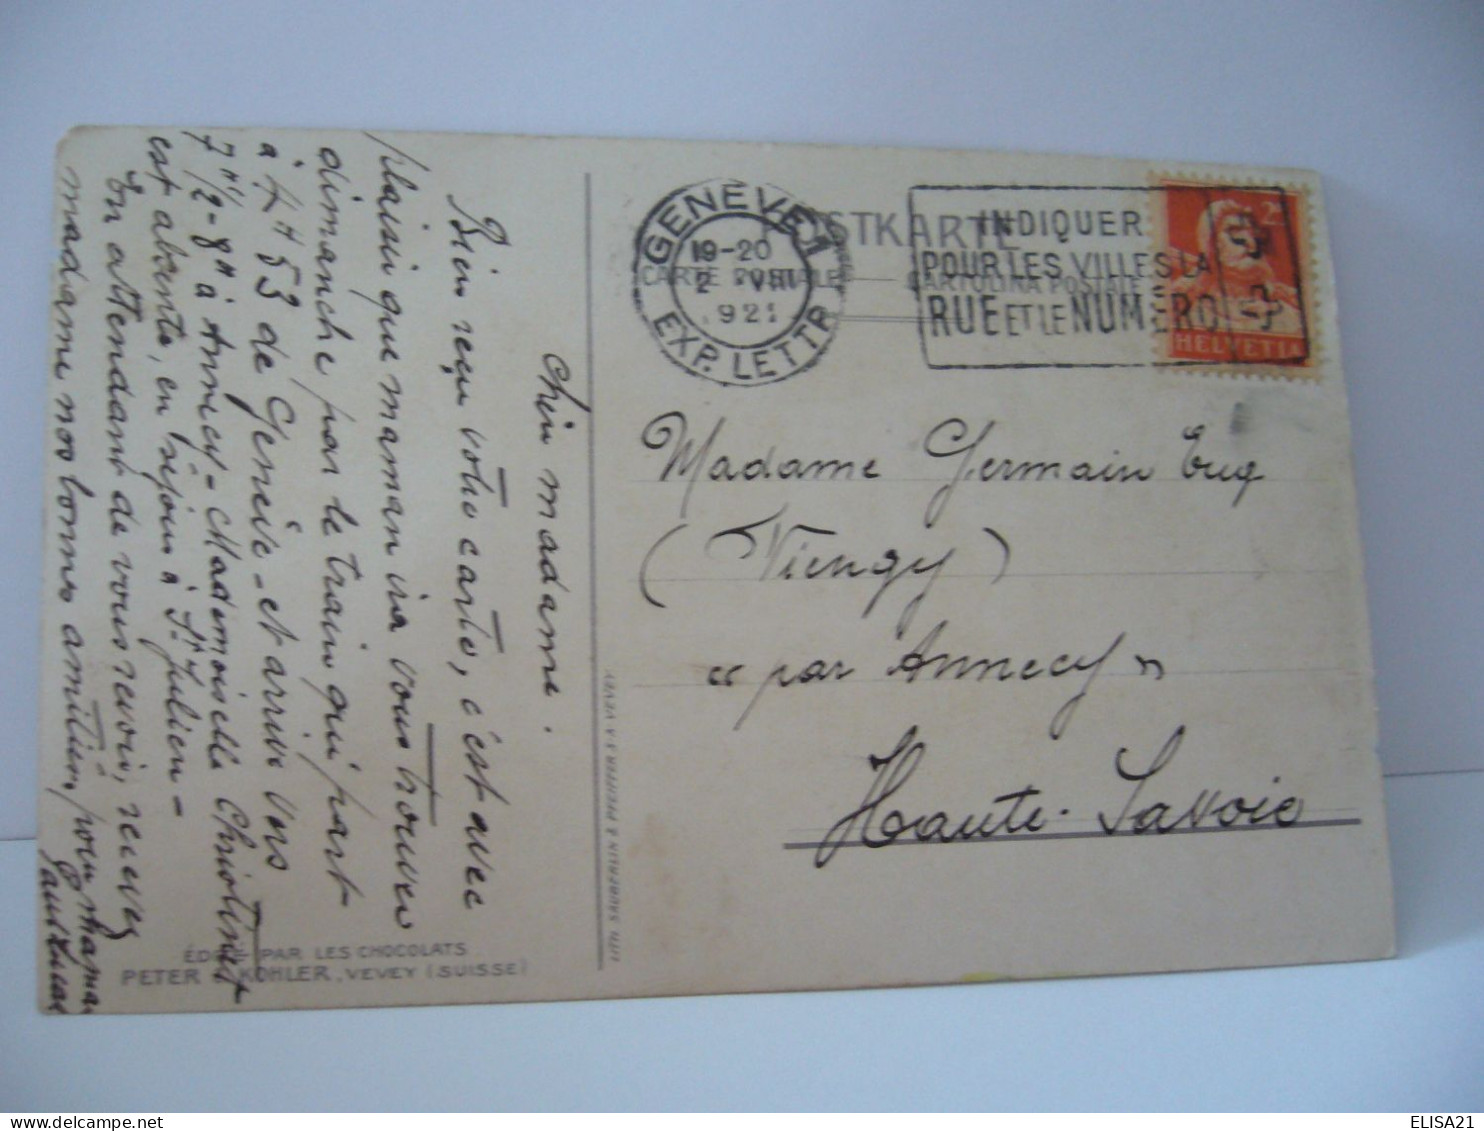 Chère madame.
Bien reçu votre carte, c'est avec
plaisir que maman ira vous trouver
dimanche par le train qui part
à 4H 53 de Genève - et arrive vers
7H 1/2 - 8H à Annecy - Mademoiselle Christinat
est absente, en séjour à St Julien -
En attendant de vous revoir, recevez
madame nos bonnes amitiés, pour maman
ÉDITÉ PAR LES CHOCOLATS
PETER KOHLER, VEVEY (SUISSE)
LITH. SÄUBERLIN & PFEIFFER S.A. VEVEY
GENÈVE 1
19-20
2 VIII
921
EXP. LETTR.
POSTKARTE
CARTE POSTALE CARTOLINA POSTALE
INDIQUER
POUR LES VILLES LA
RUE ET LE NUMÉRO
HELVETIA
Madame Germain Eug
(Viengy)
"par Annecy"
Haute-Savoie
ELISA21